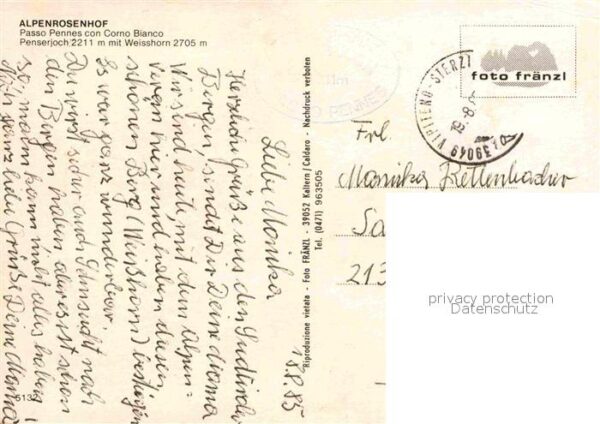 ALPENROSENHOF
Passo Pennes con Corno Bianco
Penserjoch 2211 m mit Weisshorn 2705 m
13.8.85
Liebe Monika
Herzliche Grüße aus den Südtiroler
Bergen sendet Dir Deine Mama
Wir sind heut, mit dem Alpen-
verein hier und haben diesen
schönen Berg (Weißhorn) bestiegen
Es war ganz wunderbar.
Du wirst sicher auch Sehnsucht nach
den Bergen haben, aber es ist schon
so, man kann nicht alles haben!
ganz liebe Grüße Deine Mama
5132
Riproduzione vietata - Foto FRÄNZL - 39052 Kaltern / Caldaro - Nachdruck verboten
Tel. (0471) 963505
PENNES
foto fränzl
39049 VIPITENO - STERZI
Frl.
Monika Kettenbacher
Sa
213
privacy protection
Datenschutz